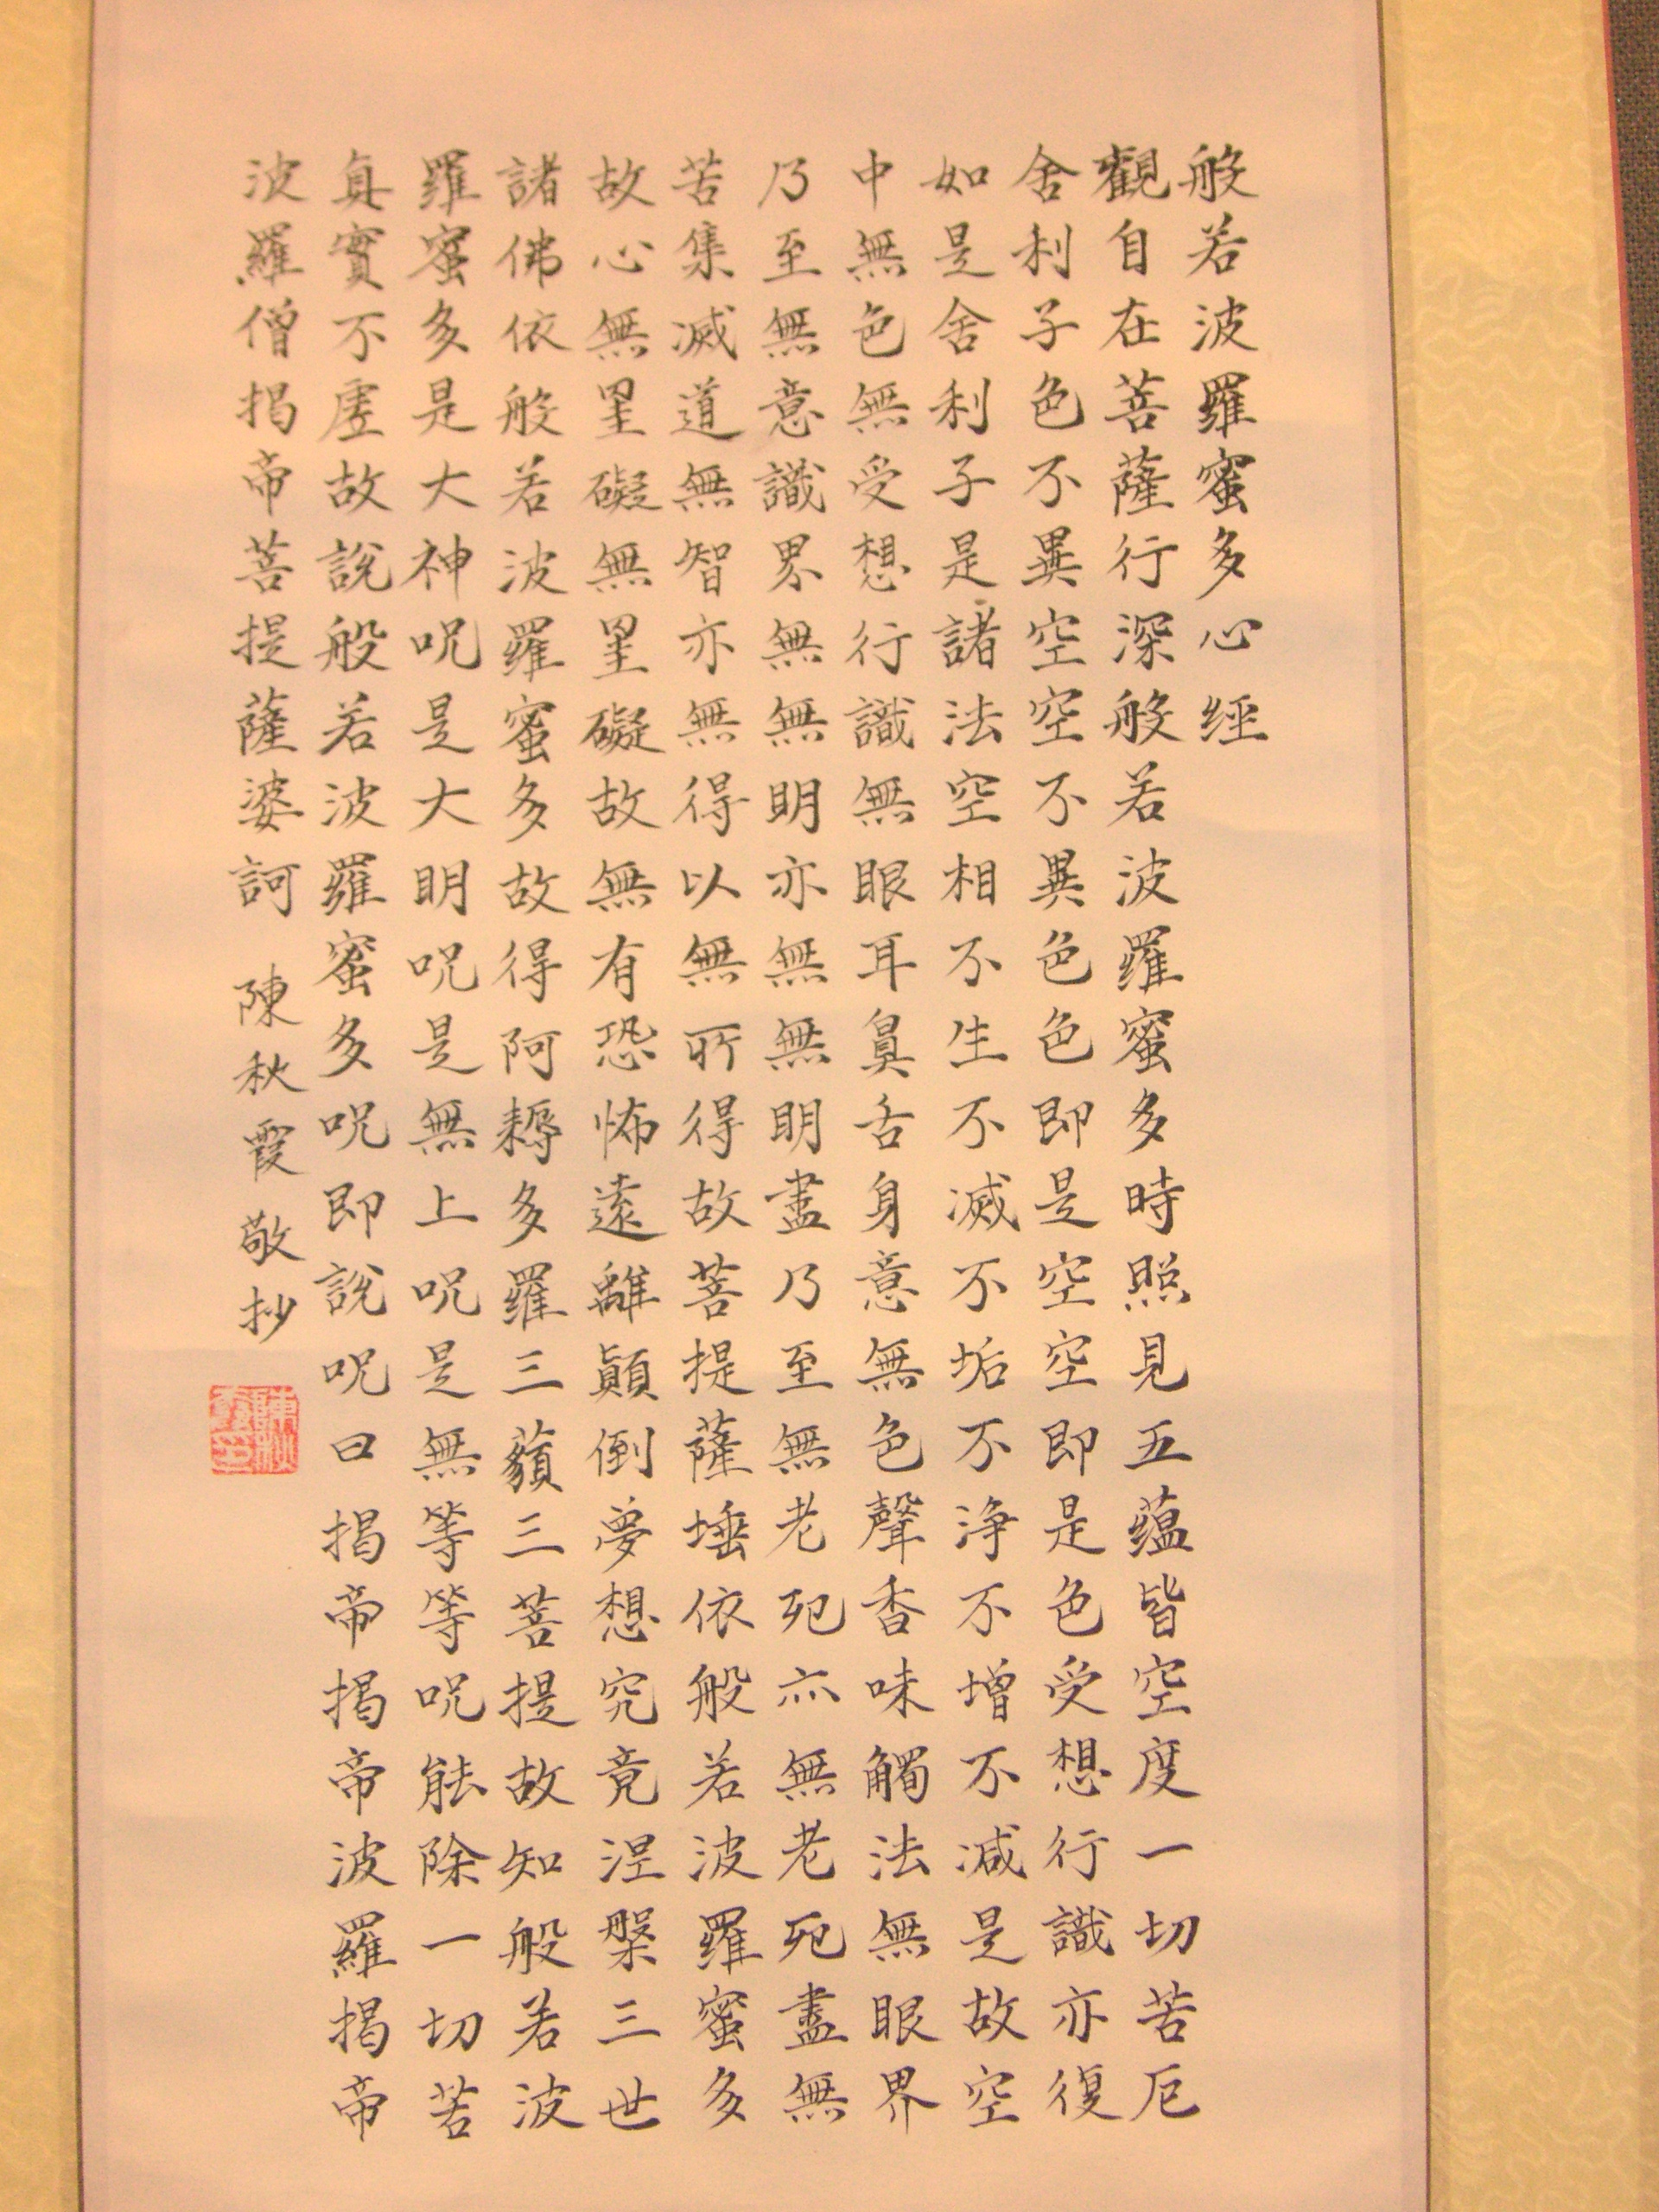 般若波羅蜜多心經
觀自在菩薩行深般若波羅蜜多時照見五蘊皆空度一切苦厄
舍利子色不異空空不異色色即是空空即是色受想行識亦復
如是舍利子是諸法空相不生不滅不垢不淨不增不減是故空
中無色無受想行識無眼耳鼻舌身意無色聲香味觸法無眼界
乃至無意識界無無明亦無無明盡乃至無老死亦無老死盡無
苦集滅道無智亦無得以無所得故菩提薩埵依般若波羅蜜多
故心無罣礙無罣礙故無有恐怖遠離顛倒夢想究竟涅槃三世
諸佛依般若波羅蜜多故得阿耨多羅三藐三菩提故知般若波
羅蜜多是大神呪是大明呪是無上呪是無等等呪能除一切苦
真實不虛故說般若波羅蜜多呪即說呪曰揭帝揭帝波羅揭帝
波羅僧揭帝菩提薩婆訶 陳秋霞敬抄